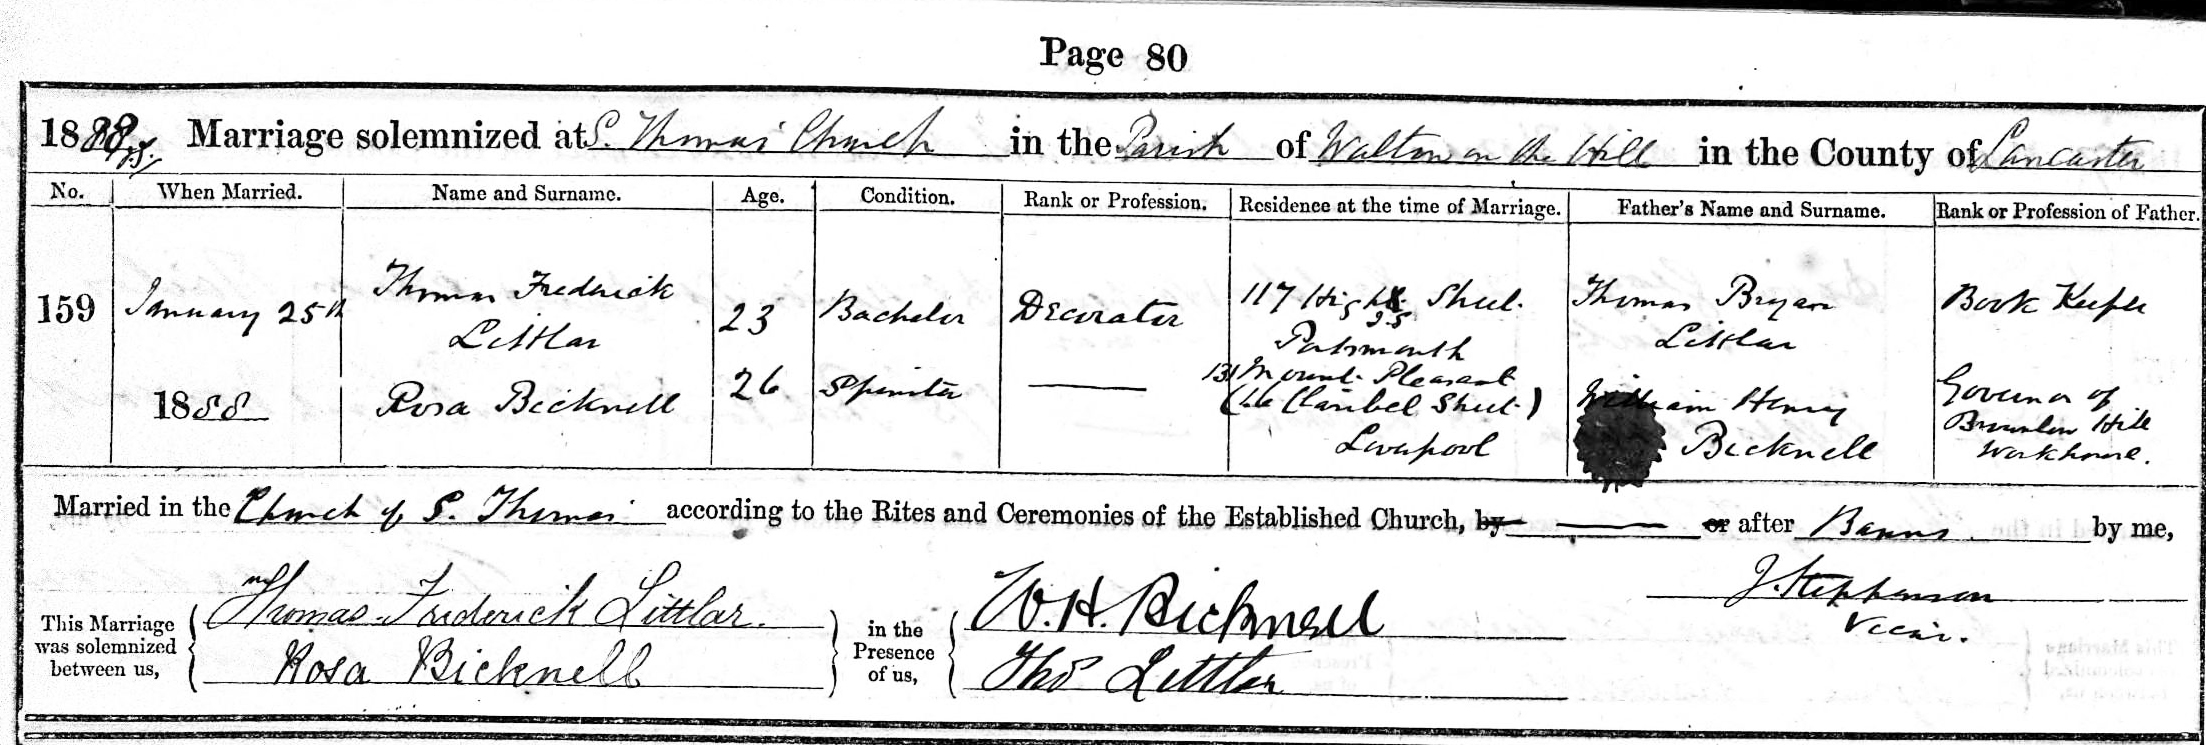 Page 80
1888 Marriage solemnized at S. Thomas' Church in the Parish of Walton on the Hill in the County of Lancaster
No. When Married. Name and Surname. Age. Condition. Rank or Profession. Residence at the time of Marriage. Father's Name and Surname. Rank or Profession of Father.
159 January 25th Thomas Frederick 23 Bachelor Decorator 117 High Street. Thomas Bryan Book Keeper
Littlar Portsmouth Littlar
1888 Rosa Bicknell 26 Spinster 131 Mount Pleasant William Henry Governor of
(16 Claribel Street) Bicknell Brownlow Hill
Liverpool Workhouse.
Married in the Church of S. Thomas according to the Rites and Ceremonies of the Established Church, by or after Banns by me,
J. Stephenson
Vicar.
This Marriage was solemnized between us, Thomas Frederick Littlar. in the Presence of us, W. H. Bicknell
Rosa Bicknell Thos Littlar